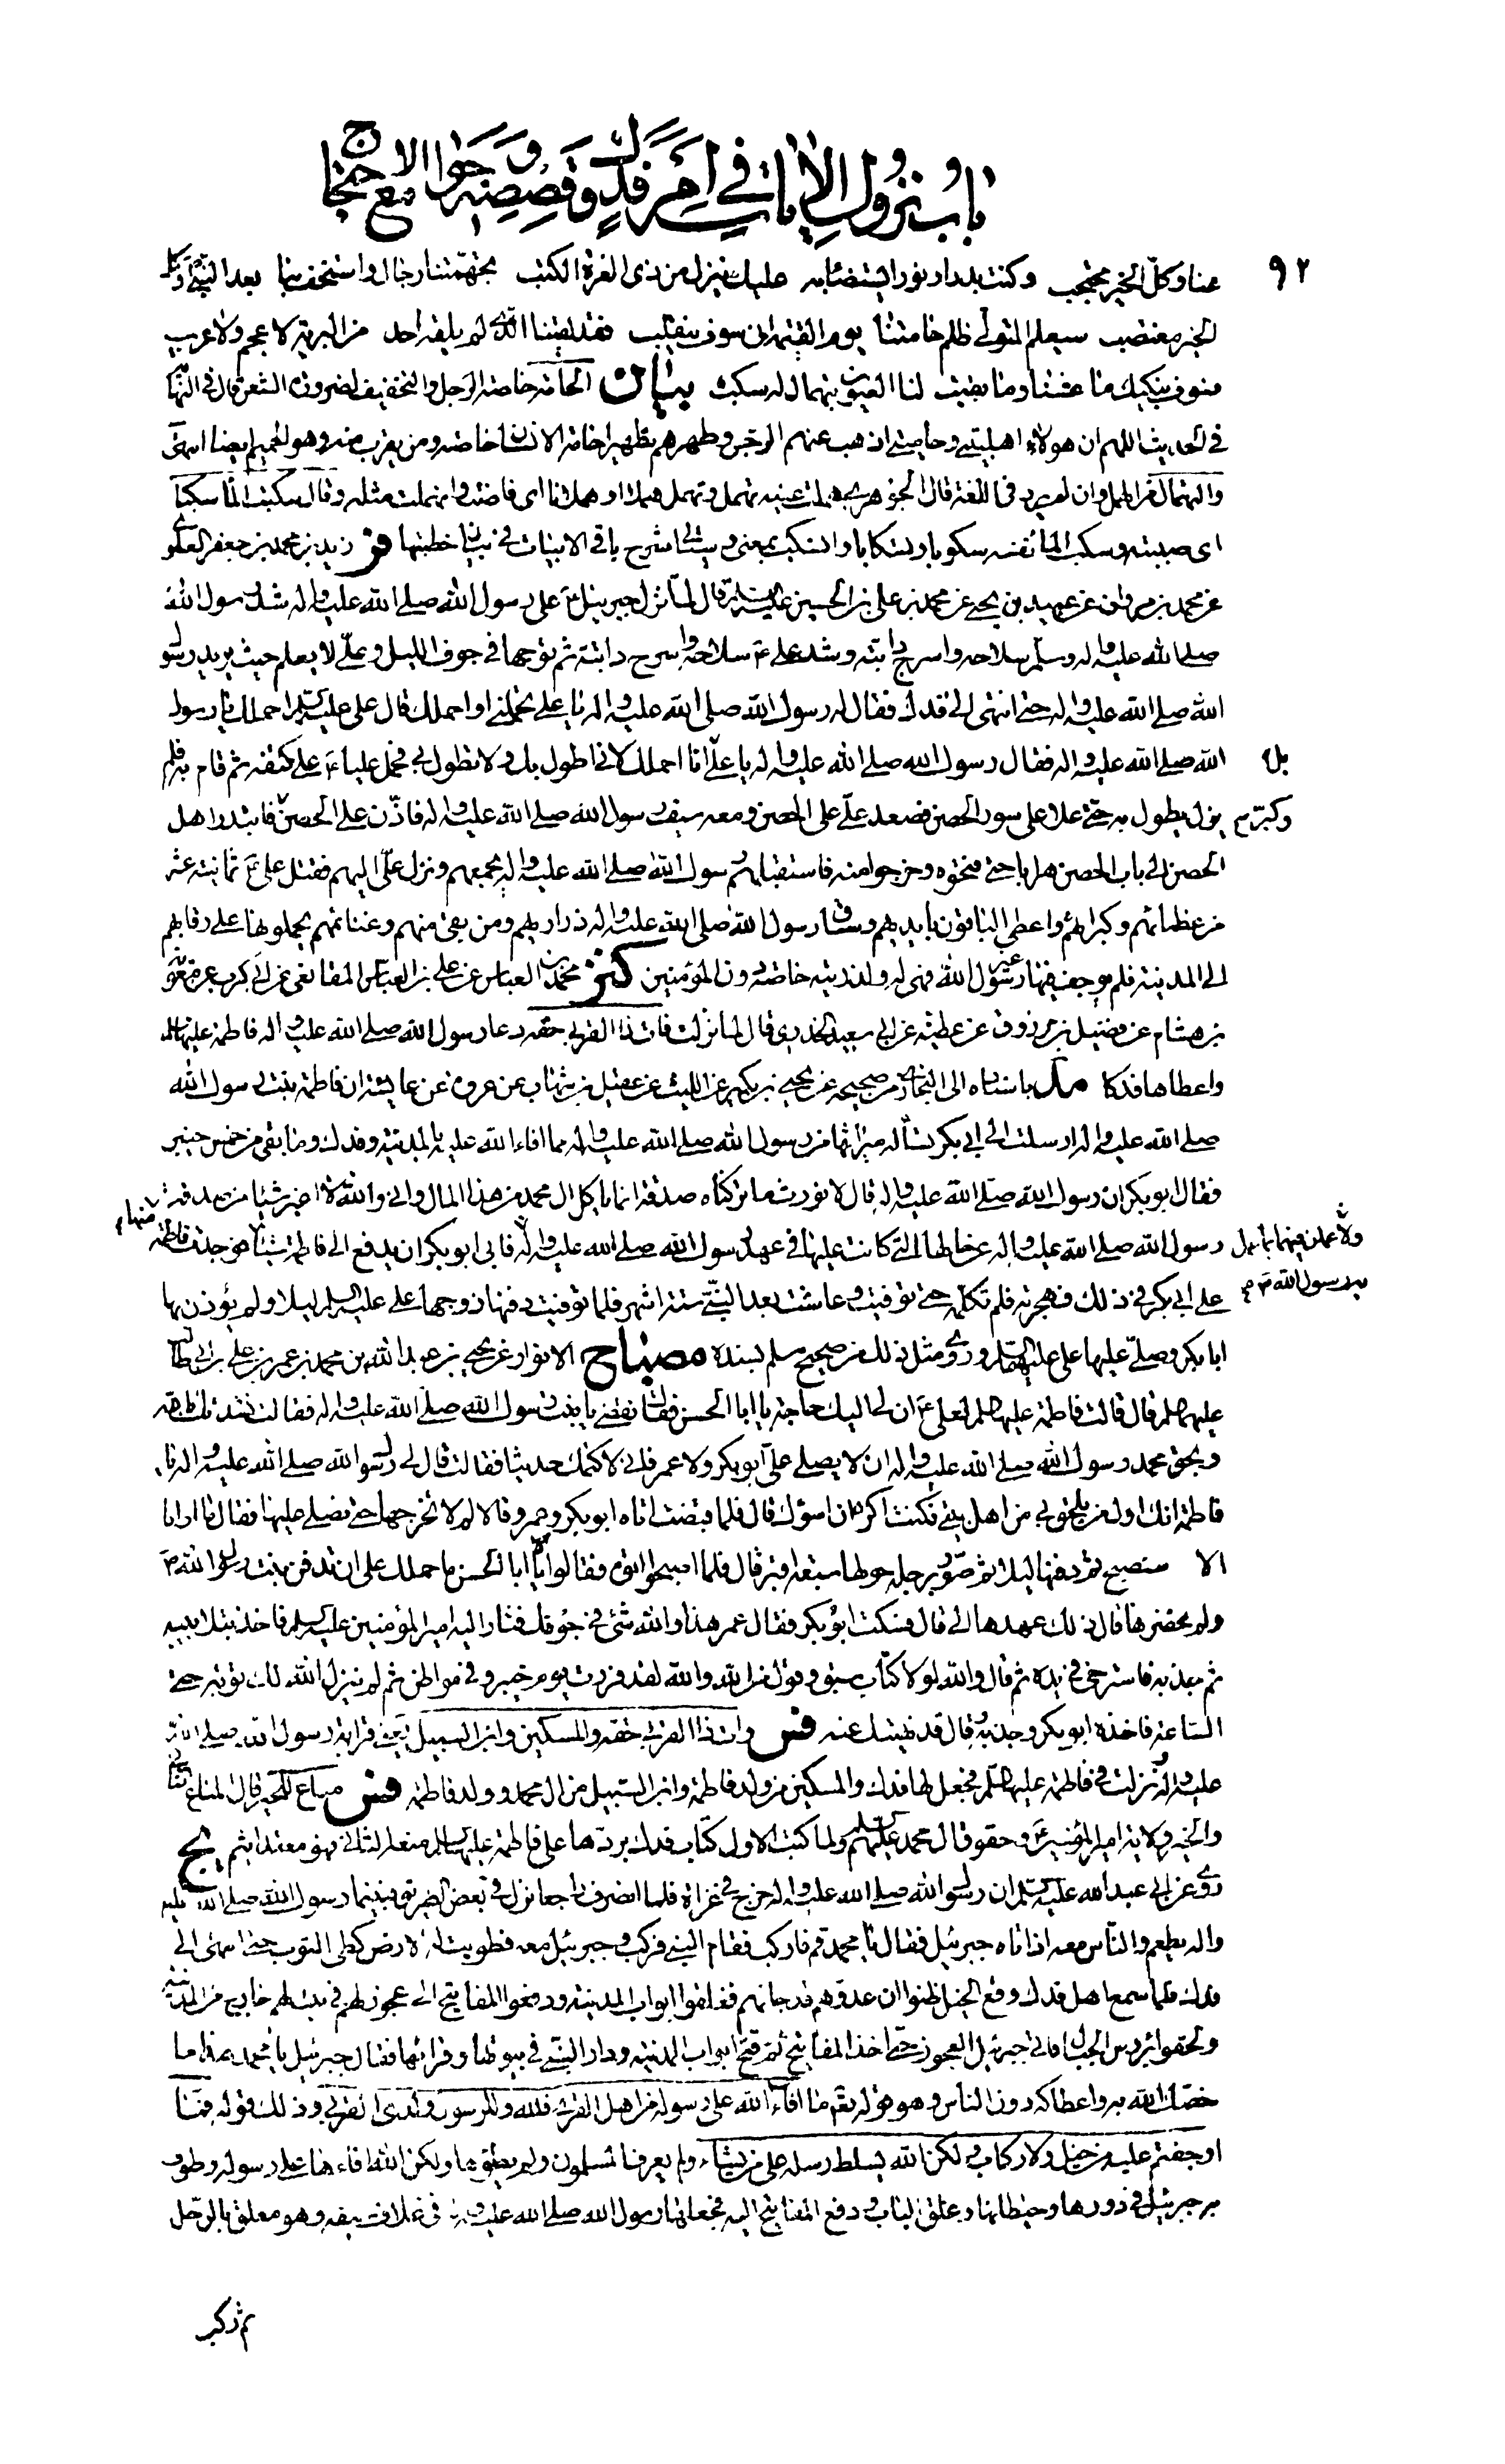 باب نزول الآيات في أمر فدك وقصصه وجوامع الاحتجاج
٩٢
عنا وكل الخير محتجب وكنت بدرا ونورا يستضاء به عليك ينزل من ذي العزة الكتب تجهمتنا رجال واستخف بنا بعد النبي وكل
الخير مغتصب سيعلم المتولي ظلم حامتنا يوم القيمة اني سوف ينقلب فقد لقينا الذي لم يلقه احد من البرية لا عجم ولا عرب
فسوف نبكيك ما عشنا وما بقيت لنا العيون بتهمال له سكب بيان الحامة خاصة الرجل والتخفيف لضرورة الشعر قال في النهاية
في الحديث اللهم ان هؤلاء اهلبيتي وحامتي اذهب عنهم الرجس وطهرهم تطهيرا حامة الانسان خاصة ومن يقرب منه وهو الحميم ايضا انتهى
والتهمال من الهمل وان لم يرد في اللغة قال الجوهري هملت عينه تهمل وتهمل هملا وهملانا اي فاضت وانهملت مثله وقال سكبت الماء سكبا
اى صببته وسكب الماء نفسه سكوبا وتسكابا وانسكب بمعنى وسيأتي شرح باقي الابيات في بيان خطبتها فر زيد بن محمد بن جعفر العلوي
عن محمد بن مروان عن عبيد بن يحيى عن محمد بن علي بن الحسين عليه السلام قال لما نزل جبرئيل ع على رسول الله صلى الله عليه واله شد رسول الله
صلى الله عليه واله وسلم سلاحه واسرج دابته وشد علي ع سلاحه واسرج دابته ثم توجها في جوف الليل وعلي لا يعلم حيث يريد رسول
الله صلى الله عليه واله حتى انتهى الى فدك فقال له رسول الله صلى الله عليه واله يا علي تحملني او احملك قال علي عليه السلم احملك يا رسول
الله صلى الله عليه واله فقال رسول الله صلى الله عليه واله يا علي انا احملك لاني اطول بك ولا تطول بي فحمل عليا ع على كتفه ثم قام به فلم
بل
يزل يطول به حتى علا على سور الحصن فصعد علي على الحصن ومعه سيف رسول الله صلى الله عليه واله فاذن على الحصن فابتدر اهل
وكبر م
الحصن الى باب الحصن هرابا حتى فتحوه وخرجوا منه فاستقبلهم رسول الله صلى الله عليه واله بجمعهم ونزل علي اليهم فقتل علي ع ثمانية عشر
من عظمائهم وكبرائهم واعطى الباقون بايديهم وساق رسول الله صلى الله عليه واله ذراريهم ومن بقي منهم وغنائمهم يحملونها على رقابهم
الى المدينة فلم يوجف فيها غير رسول الله فهي له ولذريته خاصة دون المؤمنين كنز محمد بن العباس عن علي بن العباس المقانعي عن ابي كريب عن معوية
بن هشام عن فضيل بن مرزوق عن عطية عن ابي سعيد الخدري قال لما نزلت فات ذا القربى حقه دعا رسول الله صلى الله عليه واله فاطمة عليها السلم
واعطاها فدكا مد باسناده الى البخاري من صحيحه عن يحيى بن بكير عن الليث عن عقيل بن شهاب عن عروة عن عايشة ان فاطمة بنت رسول الله
صلى الله عليه واله ارسلت الى ابي بكر تسأله ميراثها من رسول الله صلى الله عليه واله مما افاء الله عليه بالمدينة وفدك وما بقي من خمس خيبر
فقال ابو بكر ان رسول الله صلى الله عليه واله قال لا نورث ما تركناه صدقة انما ياكل ال محمد من هذا المال واني والله لا اغير شيئا من صدقة
رسول الله صلى الله عليه واله عن حالها التي كانت عليها في عهد رسول الله صلى الله عليه واله فابى ابو بكر ان يدفع الى فاطمة شيئا فوجدت فاطمة
منها م
ولأعملن فيها بما عمل
به رسول الله ص م
على ابي بكر في ذلك فهجرته فلم تكلمه حتى توفيت وعاشت بعد النبي ستة اشهر فلما توفيت دفنها زوجها علي عليه السلم ليلا ولم يؤذن بها
ابا بكر وصلى عليها علي عليه السلم وروى مثل ذلك من صحيح مسلم بسنده مصباح الانوار عن يحيى بن عبد الله بن محمد بن عمر بن علي بن ابي طالب
عليهم السلم قال قالت فاطمة عليها السلم لعلي ع ان لي اليك حاجة يا ابا الحسن فقال تقضى يا بنت رسول الله صلى الله عليه واله فقالت نشدتك بالله
وبحق محمد رسول الله صلى الله عليه واله ان لا يصلي علي ابو بكر ولا عمر فاني لاكتمك حديثا فقالت قال لي رسول الله صلى الله عليه واله يا
فاطمة انك اول من يلحق بي من اهل بيتي فكنت اكره ان اسوئك قال فلما قبضت اتاه ابو بكر وعمر وقالا لم لا تخرجها حتى نصلي عليها فقال ما ارانا
الا سنصبح ثم دفنها ليلا ثم صور برجله حولها سبعة اقبر قال فلما اصبحوا اتوه فقالوا يا ابا الحسن ما حملك على ان تدفن بنت رسول الله ص
ولم نحضرها قال ذلك عهدها الي قال فسكت ابو بكر فقال عمر هذا والله شئ في جوفك فثار اليه امير المؤمنين عليه السلم فاخذ بتلابيبه
ثم جذبه فاسترخى في يده ثم قال والله لولا كتاب سبق وقول من الله والله لقد فررت يوم خيبر وفي مواطن ثم لم ينزل الله لك توبة حتى
الساعة فاخذه ابو بكر وجذبه وقال قد نهيتك عنه فس وات ذا القربى حقه والمسكين وابن السبيل يعنى قرابة رسول الله صلى الله
عليه واله نزلت في فاطمة عليها السلم فجعل لها فدك والمسكين من ولد فاطمة وابن السبيل من ال محمد وولد فاطمة فس مناع للخير قال المناع الثاني
والخير ولاية امير المؤمنين ع وحقوق ال محمد عليهم السلم ولما كتب الاول كتاب فدك بردها على فاطمة عليها السلم منعه الثاني فهو معتد اثيم يج
روي عن ابي عبد الله عليه السلم ان رسول الله صلى الله عليه واله خرج في غزاة فلما انصرف راجعا نزل في بعض الطريق فبينما رسول الله صلى الله عليه
واله يطعم والناس معه اذ اتاه جبرئيل فقال يا محمد قم فاركب فقام النبي فركب وجبرئيل معه فطويت له الارض كطي الثوب حتى انتهى الى
فدك فلما سمع اهل فدك وقع الخيل ظنوا ان عدوهم قد جائهم فغلقوا ابواب المدينة ودفعوا المفاتيح الى عجوز لهم في بيت لهم خارج من المدينة
ولحقوا برؤس الجبال فاتى جبرئيل العجوز حتى اخذ المفاتيح ثم فتح ابواب المدينة ودار النبي في بيوتها وقرائها فقال جبرئيل يا محمد هذا ما
خصك الله به واعطاكه دون الناس وهو قوله تعم ما افاء الله على رسوله من اهل القرى فلله وللرسول ولذي القربى وذلك قوله فما
اوجفتم عليه من خيل ولا ركاب ولكن الله يسلط رسله على من يشاء ولم يعرف المسلمون ولم يطئوها ولكن الله افاءها على رسوله وطوف
به جبرئيل في دورها وحيطانها وغلق الباب ودفع المفاتيح اليه فجعلها رسول الله صلى الله عليه واله في غلاف سيفه وهو معلق بالرحل
ثم ركب